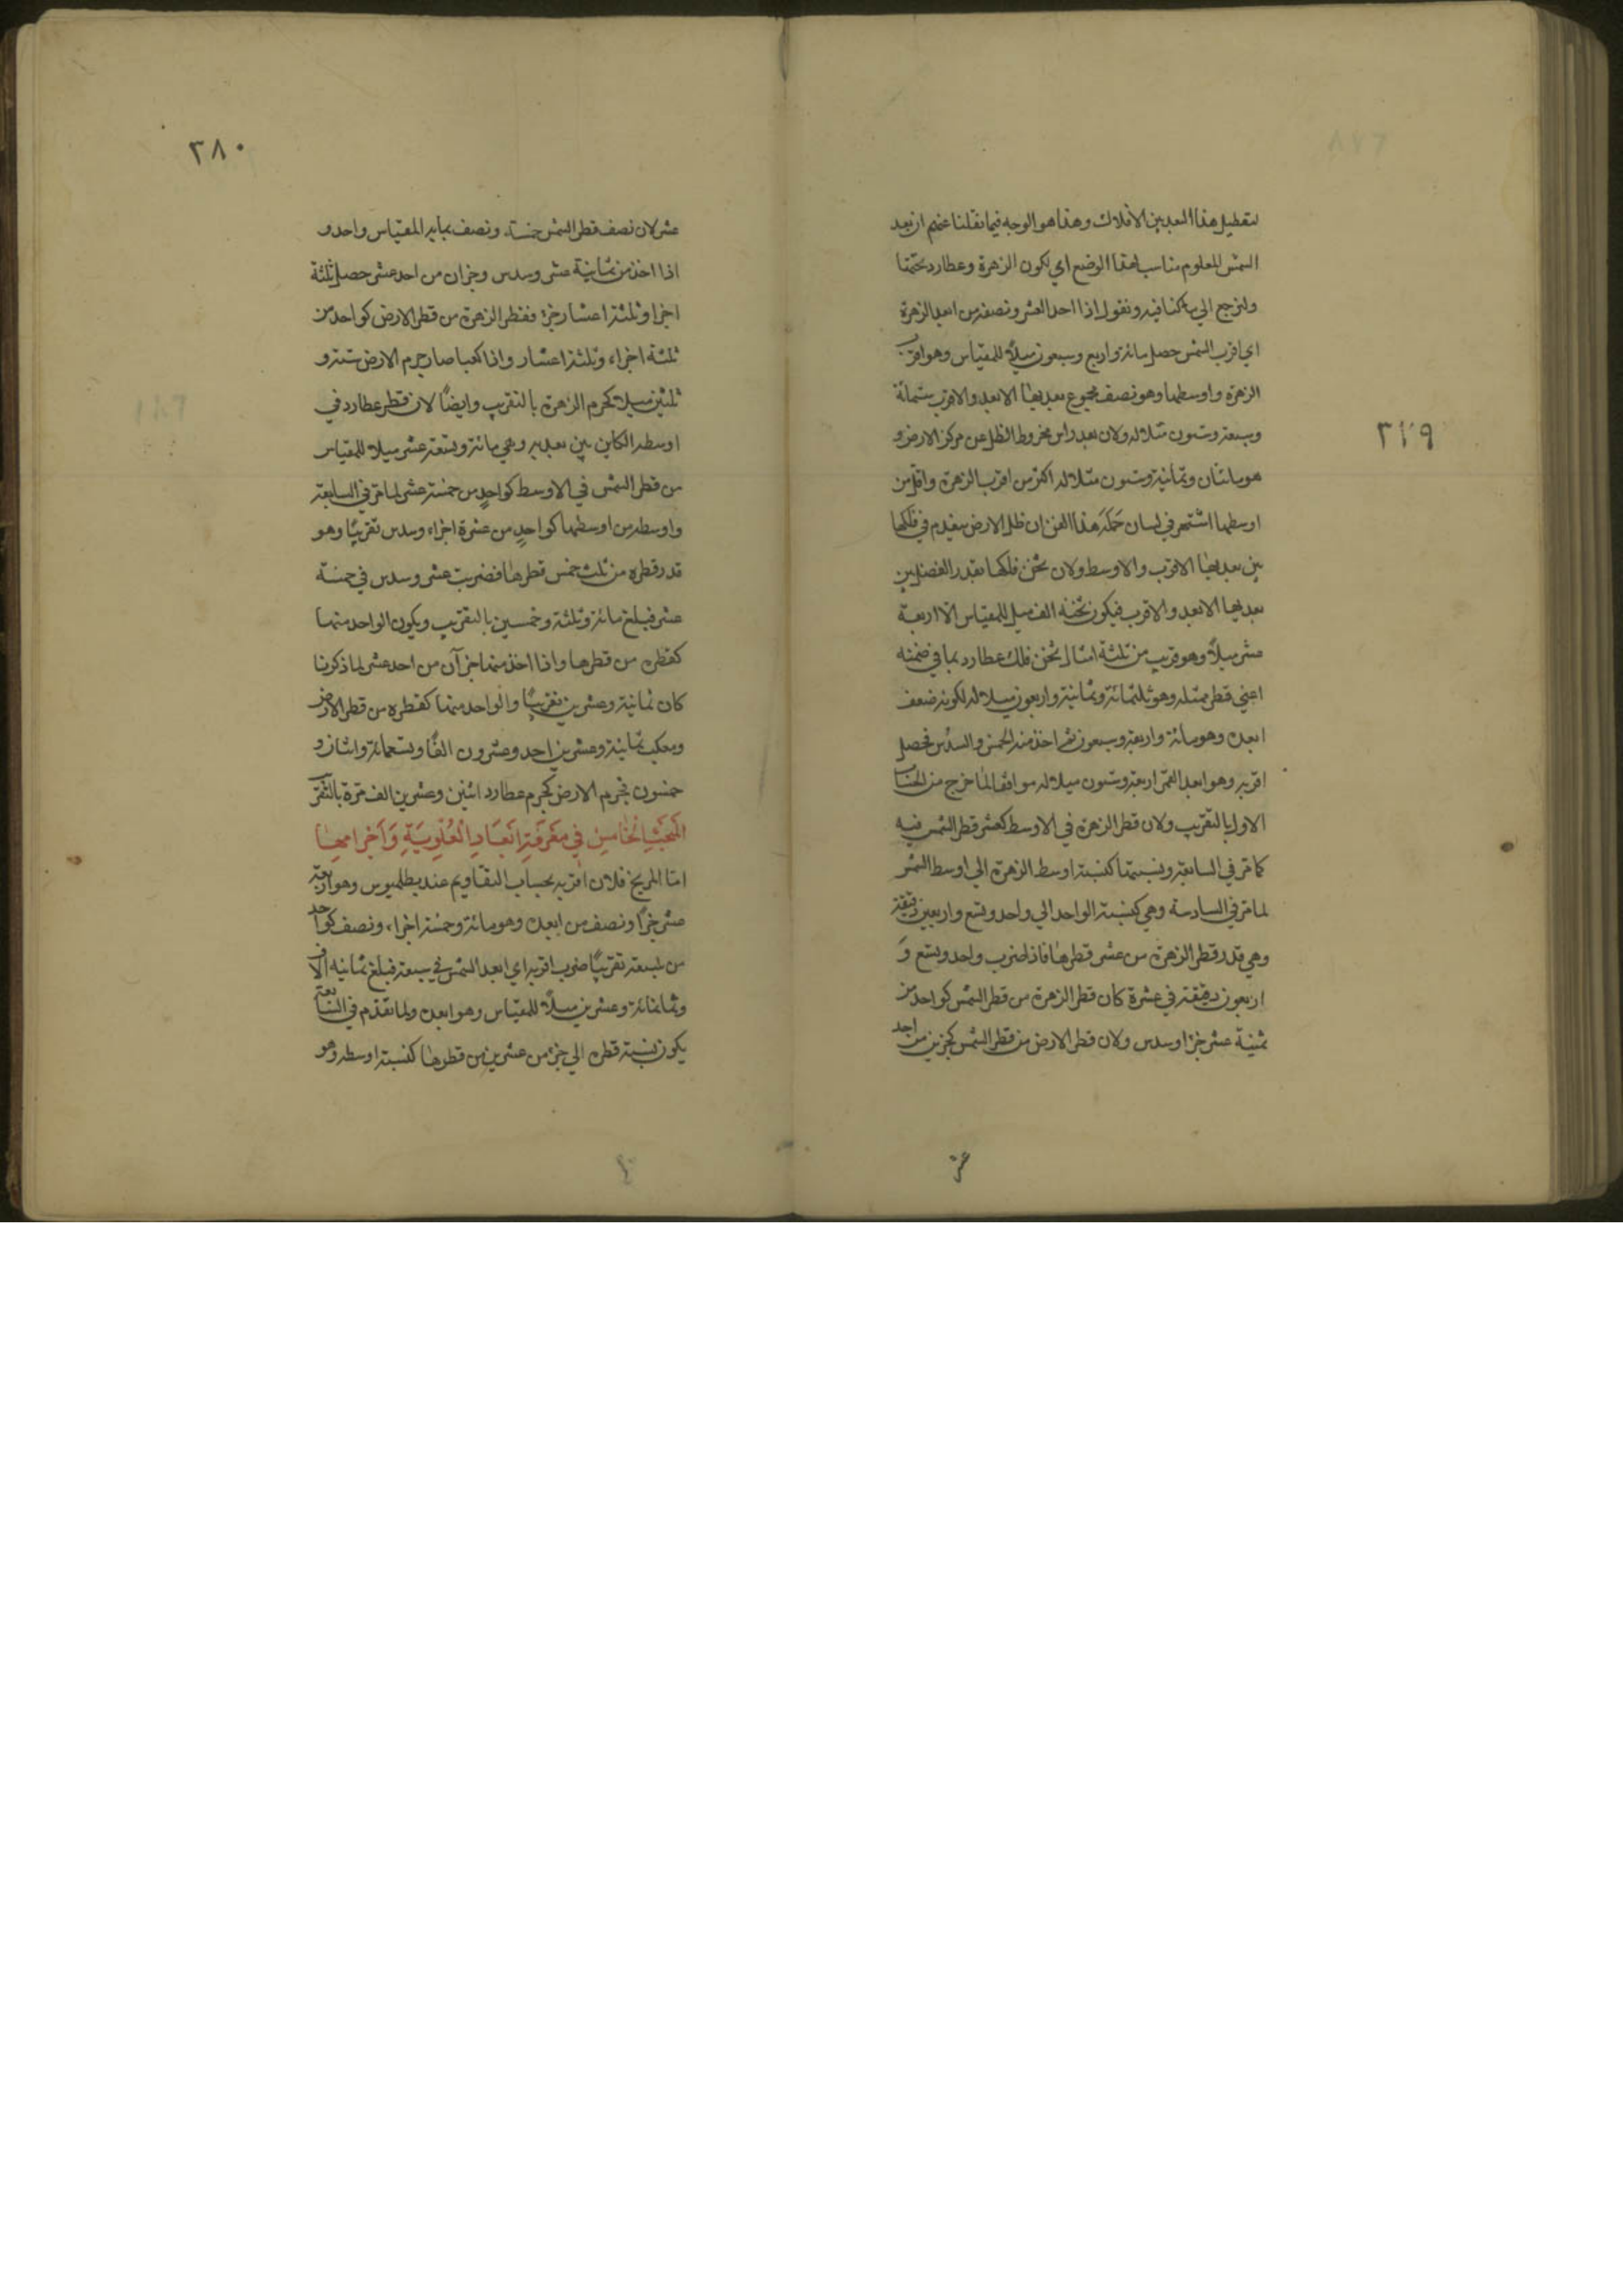 ٣٧٩
لتعطيل هذا البعد بين الافلاك وهذا هو الوجه فيما نقلنا عنهم ان بعد
الشمس المعلوم مناسب لهذا الوضع اي لكون الزهرة وعطارد تحتها
ولنرجع الي ما كنا فيه ونقول اذا احد العشر ونصفه من ابعد الزهرة
اي اقرب الشمس حصل مائة واربع وسبعون ميلاً للمقياس وهو اقرب
الزهرة واوسطها وهو نصف مجموع بعديها الابعد والاقرب ستمائة
وسبعة وستون مثلا له ولان بعد راس مخروط الظل عن مركز الارض و
هو مائتان وثمانية وستون مثلا له اكثر من اقرب الزهرة واقل من
اوسطها اشتهر في لسان حَمَلَة هذا الفن ان ظل الارض ينعدم في فلكها
بين بعديها الاقرب والاوسط ولان ثخن فلكها بقدر الفضل بين
بعديها الابعد والاقرب فيكون ثخنه الف ميل للمقياس الا اربعة
عشر ميلاً وهو قريب من ثلثة امثال ثخن فلك عطارد بما في ضمنه
اعني قطر ممثله وهو ثلثمائة وثمانية واربعون ميلا له لكونه ضعف
ابعده وهو مائة واربعة وسبعون ثم اخذ منه الخمس والسدس فحصل
اقربه وهو ابعد القمر اربعة وستون ميلا له موافقا لما خرج من الحساب
الاول بالتقريب ولان قطر الزهرة في الاوسط كعشر قطر الشمس فيه
كما مر في السابعة ونسبتها كنسبة اوسط الزهرة الي اوسط الشمس
لما مر في السادسة وهي كنسبة الواحد الي واحد وتسع واربعين دقيقة
وهي قدر قطر الزهرة من عشر قطرها فاذا ضرب واحد وتسع وَ
اربعون دقيقة في عشرة كان قطر الزهرة من قطر الشمس كواحد من
ثمنية عشر جزءا وسدس ولان قطر الارض من قطر الشمس كجزئين من احد
عشر
٣٨٠
عشر لان نصف قطر الشمس خمسة ونصف بما به المقياس واحد و
اذا اخذ من ثمانية عشر وسدس وجزان من احد عشر حصل ثلثة
اجزا وثلثة اعشار جزء فقطر الزهرة من قطر الارض كواحد من
ثلثة اجزاء وثلثة اعشار واذا كعبا صار جرم الارض ستة و
ثلثين ميلا كجرم الزهرة بالتقريب وايضاً لان قطر عطارد في
اوسطه الكاين بين بعديه وهي مائة وتسعة عشر ميلا للمقياس
من قطر الشمس في الاوسط كواحدٍ من خمسة عشر لما مر في السابعة
واوسطه من اوسطها كواحدٍ من عشرة اجزاء وسدس تقريبًا وهو
قدر قطره من ثلث خمس قطرها فضربت عشر وسدس في خمسة
عشر فبلغ مائة وثلثة وخمسين بالتقريب ويكون الواحد منها
كقطره من قطرها واذا اخذ منها جزآن من احد عشر لما ذكرنا
كان ثمانية وعشرين تقريبًا والواحد منها كقطره من قطر الارض
ومكعب ثمانية وعشرين احد وعشرون الفًا وتسعمائة واثنان و
خمسون فجرم الارض كجرم عطارد اثنين وعشرين الف مرة بالتقريب
المَبْحَثُ الخَامِسُ فِي مَعْرِفَةِ اَبْعَادِ الْعُلْوِيَةِ وَاَجْرَامِهَا
اما المريخ فلان اقربه بحساب التقاويم عند بطلميوس وهو اربعة
عشر جزءًا ونصف من ابعده وهو مائة وخمسة اجزاء ونصف كواحد
من سبعة تقريبًا ضرب اقربه اي ابعد الشمس في سبعة فبلغ ثمانية الاف
وثمانمائة وعشرين ميلاً للمقياس وهو ابعده ولما تقدم في السابعة
يكون نسبة قطره الي جزء من عشرين من قطرها كنسبة اوسطه وهو